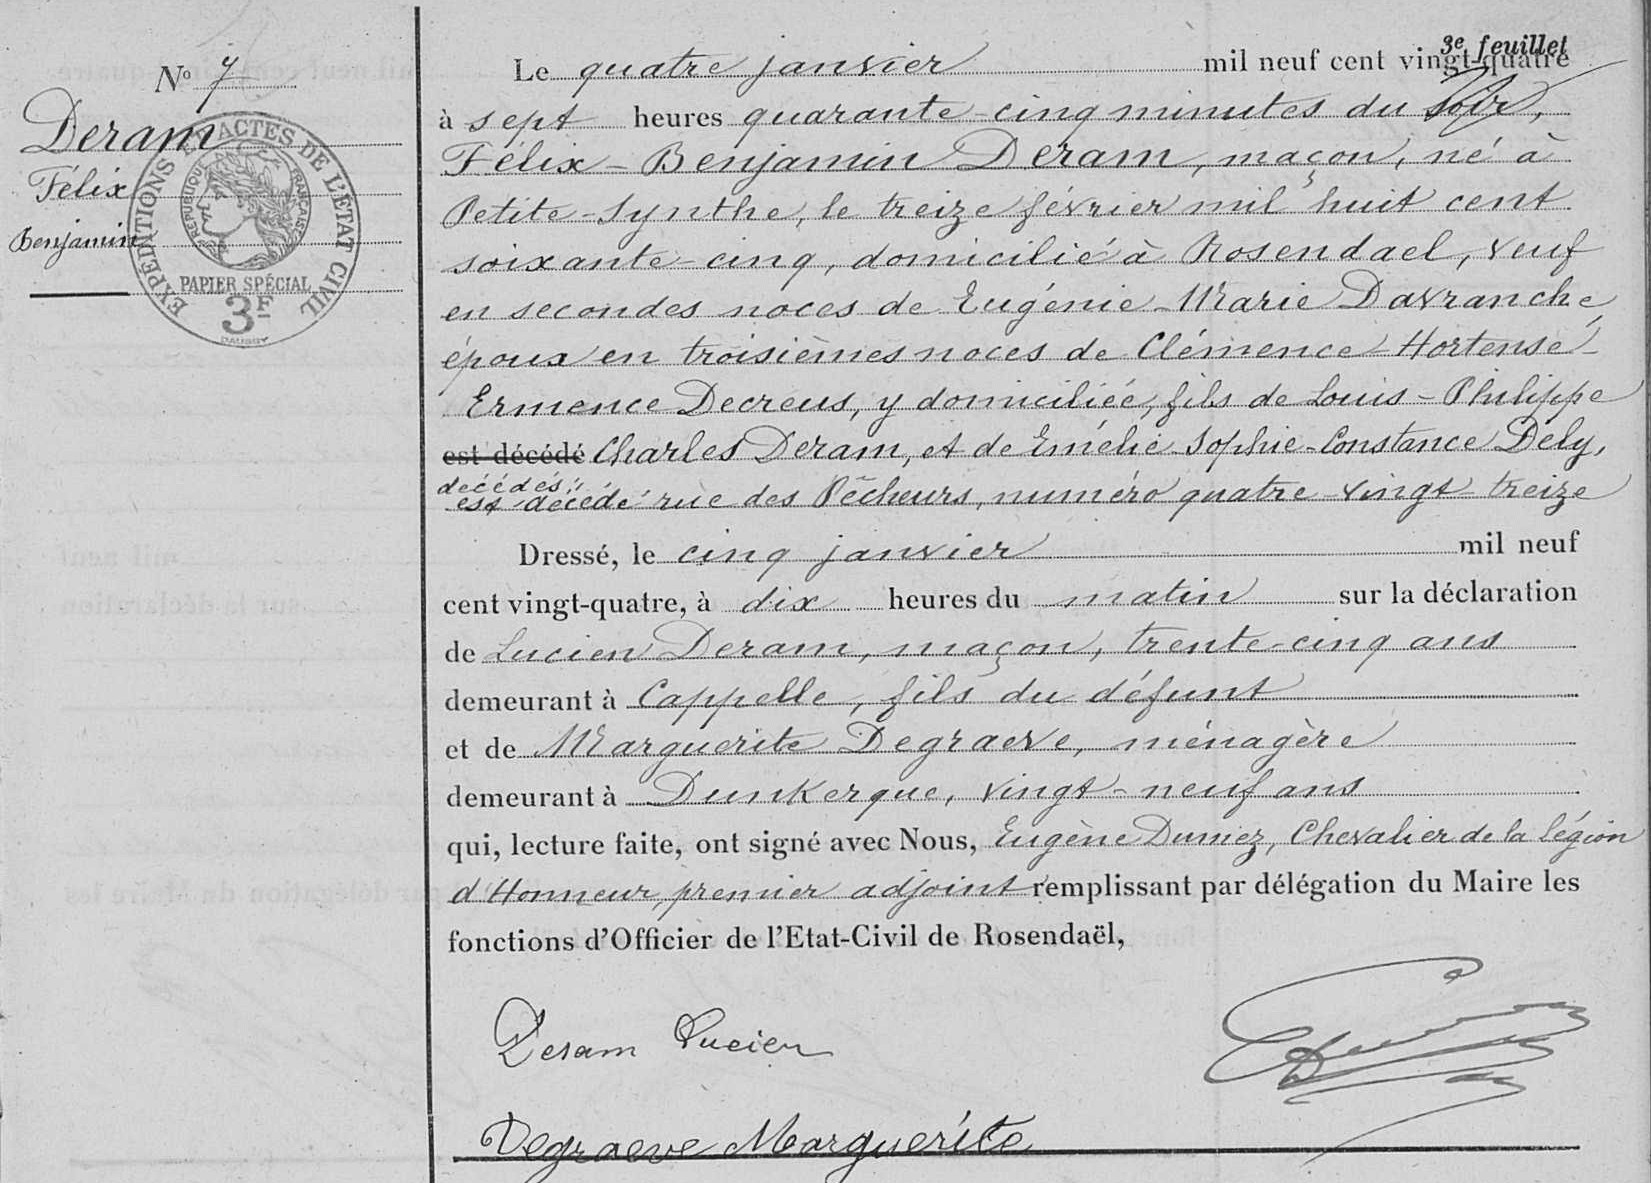 3e feuillet
N° 7
Deram
Félix
Benjamin
EXPÉDITIONS ET ACTES DE L'ÉTAT CIVIL
RÉPUBLIQUE FRANÇAISE
PAPIER SPÉCIAL
3F
Le quatre janvier mil neuf cent vingt-quatre
à sept heures quarante-cinq minutes du soir,
Félix-Benjamin Deram, maçon, né à
Petite-Synthe, le treize février mil huit cent
soixante-cinq, domicilié à Rosendael, veuf
en secondes noces de Eugénie-Marie Davranche,
époux en troisièmes noces de Clémence-Hortense-
Ermence Decreus, y domiciliée, fils de Louis-Philippe
est décédé Charles Deram, et de Emélie-Sophie-Constance Dely,
décédés;
est décédé rue des Pêcheurs, numéro quatre-vingt-treize
Dressé, le cinq janvier mil neuf
cent vingt-quatre, à dix heures du matin sur la déclaration
de Lucien Deram, maçon, trente-cinq ans
demeurant à Cappelle, fils du défunt
et de Marguerite Degraeve, ménagère
demeurant à Dunkerque, vingt-neuf ans
qui, lecture faite, ont signé avec Nous, Eugène Dumez, Chevalier de la Légion
d'Honneur, premier adjoint remplissant par délégation du Maire les
fonctions d'Officier de l'Etat-Civil de Rosendaël,
Deram Lucien
Degraeve Marguerite